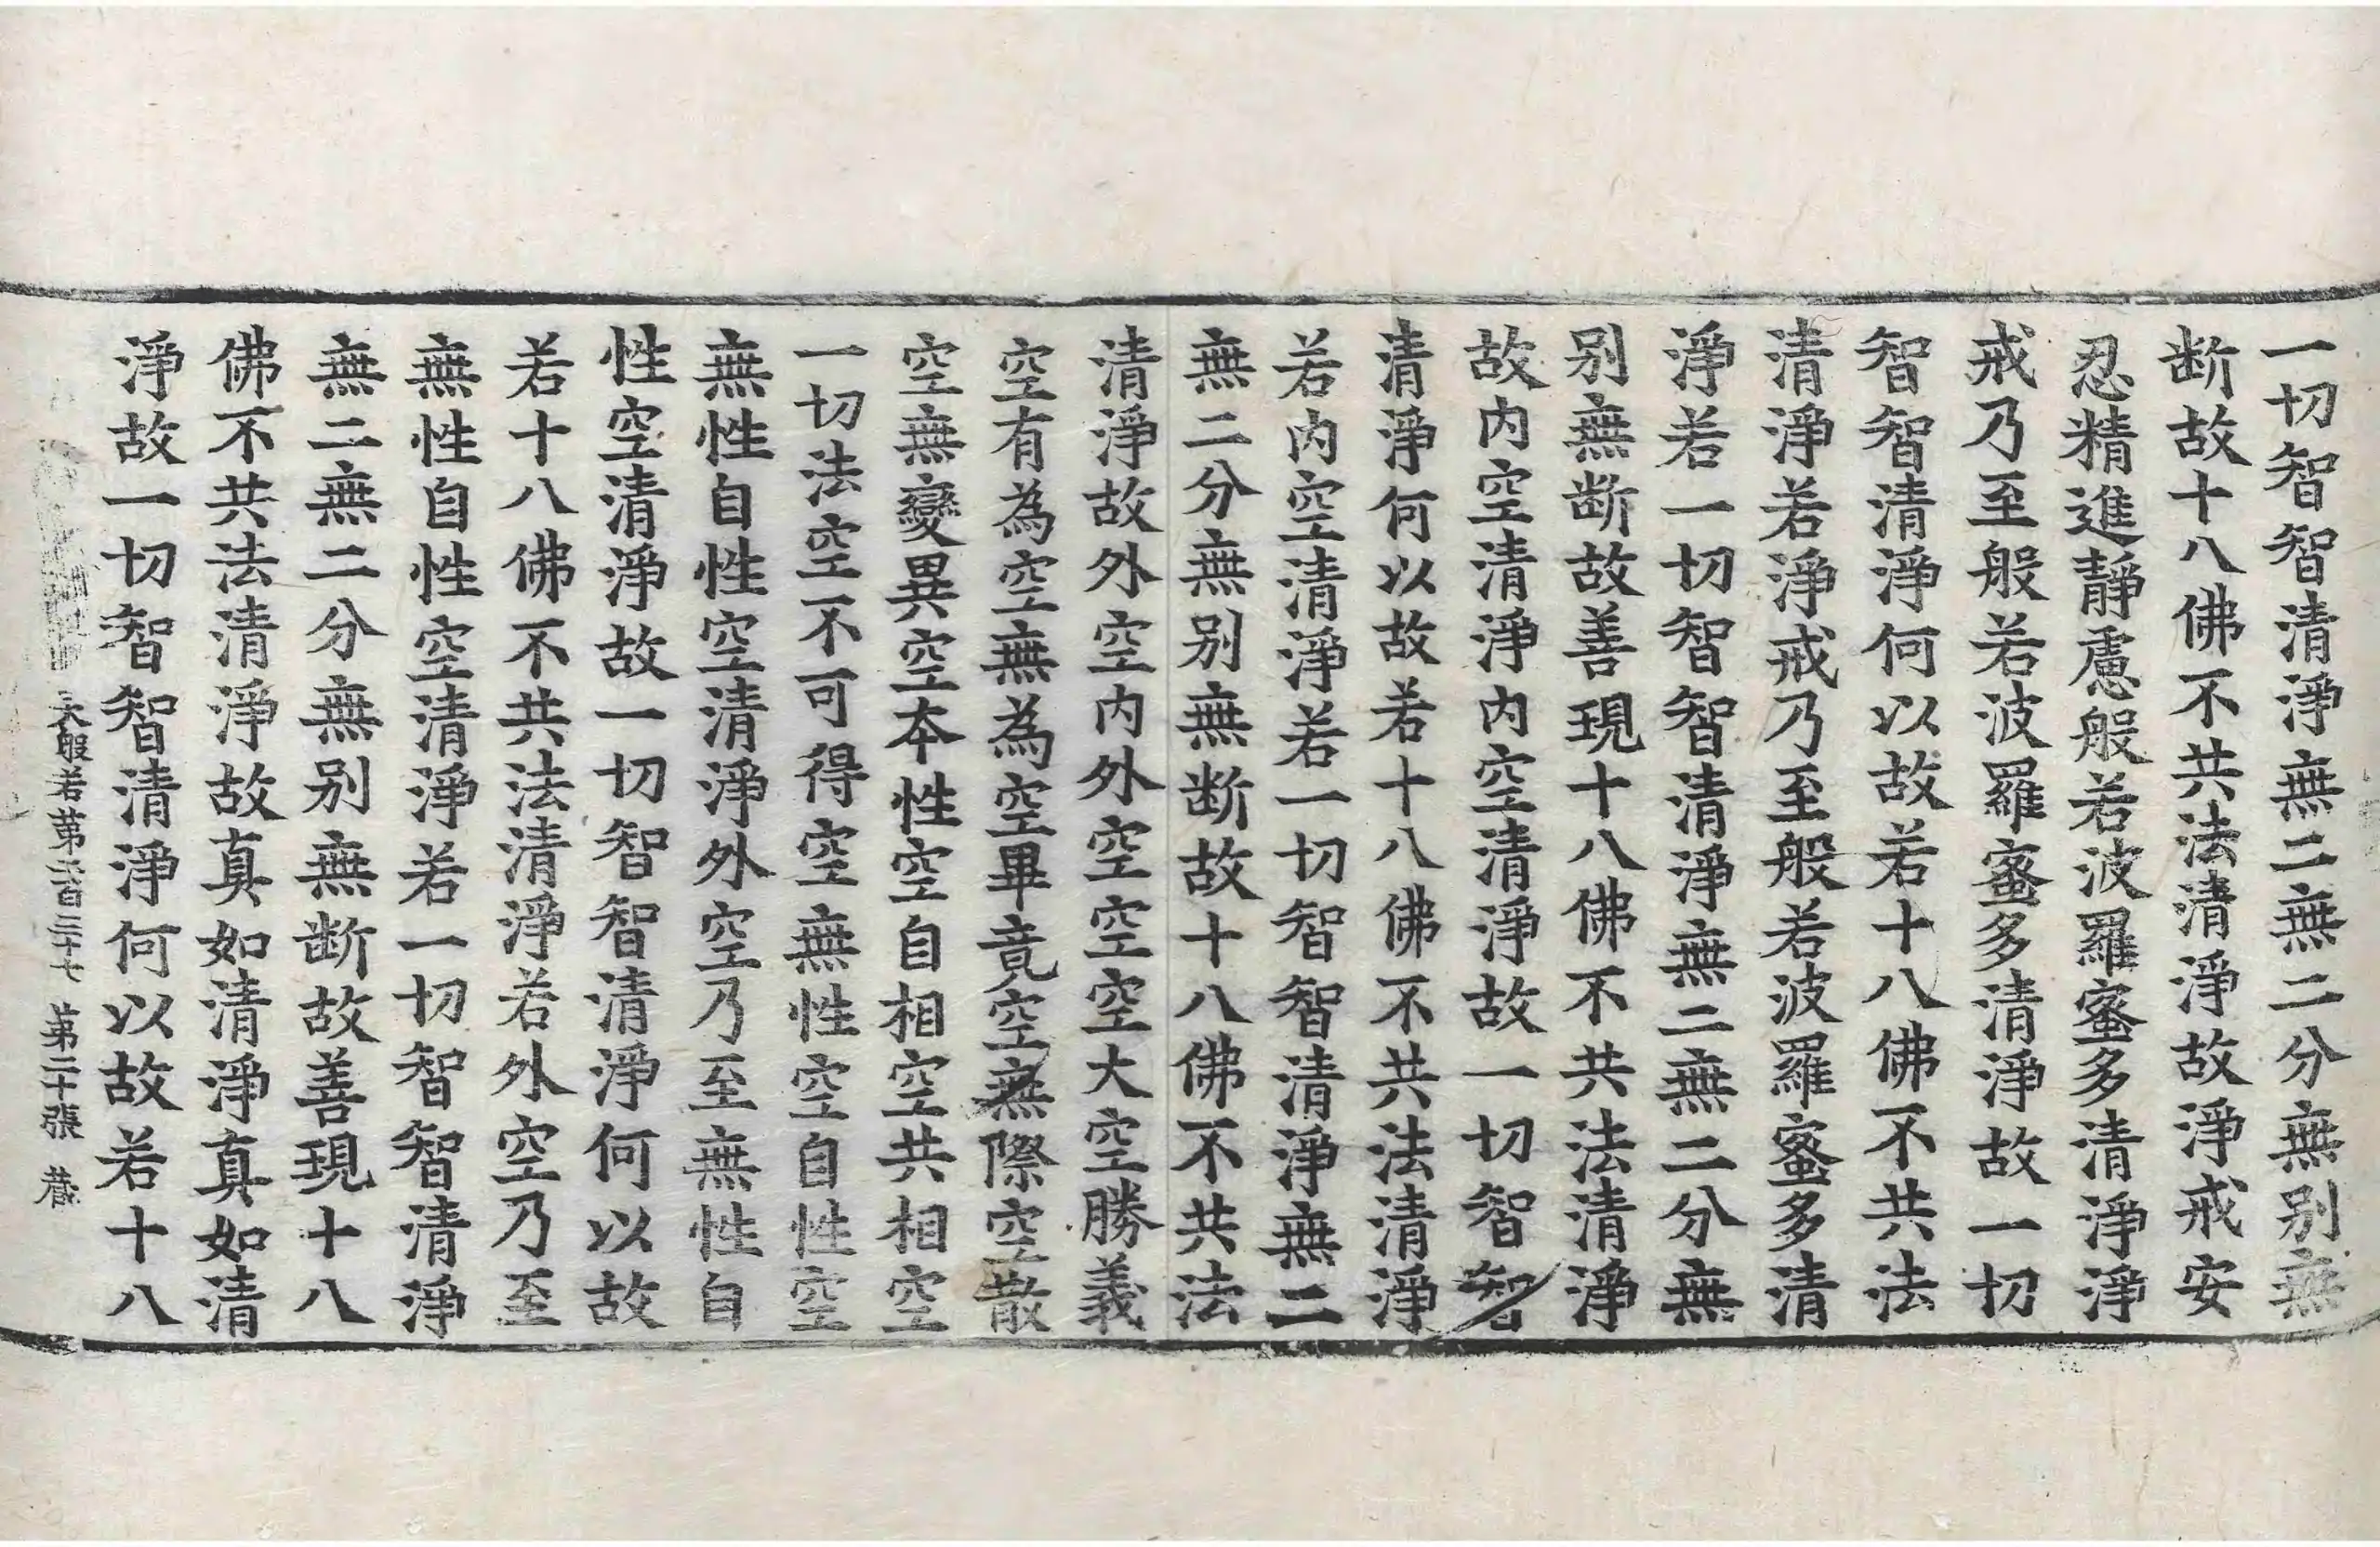 一切智智清淨無二無二分無別無
断故十八佛不共法清淨故淨戒安
忍精進靜慮般若波羅蜜多清淨淨
戒乃至般若波羅蜜多清淨故一切
智智清淨何以故若十八佛不共法
清淨若淨戒乃至般若波羅蜜多清
淨若一切智智清淨無二無二分無
別無断故善現十八佛不共法清淨
故內空清淨內空清淨故一切智智
清淨何以故若十八佛不共法清淨
若內空清淨若一切智智清淨無二
無二分無別無断故十八佛不共法
清淨故外空內外空空空大空勝義
空有為空無為空畢竟空無際空散
空無變異空本性空自相空共相空
一切法空不可得空無性空自性空
無性自性空清淨外空乃至無性自
性空清淨故一切智智清淨何以故
若十八佛不共法清淨若外空乃至
無性自性空清淨若一切智智清淨
無二無二分無別無断故善現十八
佛不共法清淨故真如清淨真如清
淨故一切智智清淨何以故若十八
大般若第二百三十七 第二十張 藏